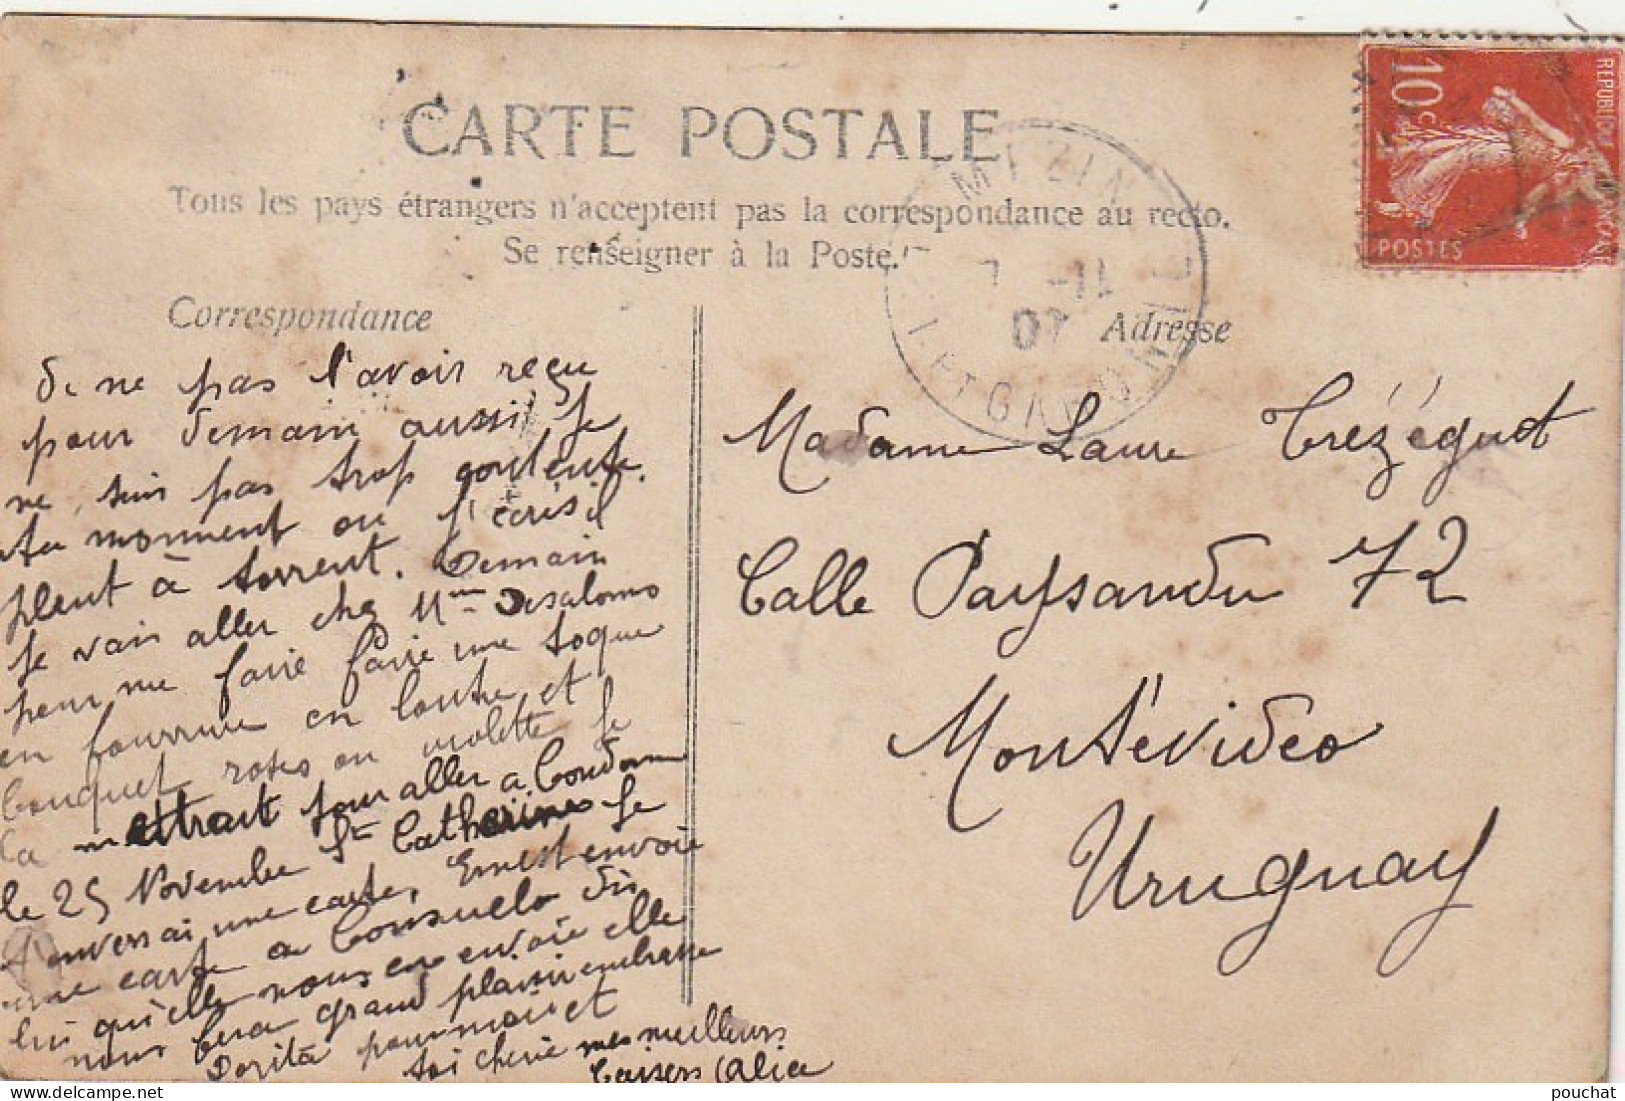 CARTE POSTALE
Tous les pays étrangers n'acceptent pas la correspondance au recto.
Se renseigner à la Poste.
MEZIN
7 -11
07
LOT ET GARONNE
10c
REPUBLIQUE FRANCAISE
POSTES
Correspondance
de ne pas l'avoir reçu
pour demain aussi je
ne suis pas trop contente.
Au moment ou j'écris il
pleut à torrent. Demain
je vais aller chez Mme Desalons
pour me faire faire une toque
en fourrure en loutre et
bouquet roses ou violette je
la mettrait pour aller a Condom
le 25 Novembre Ste Catherine je
t'enverrai une carte. Ernest envoie
une carte a Consuelo dis
lui qu'elle nous en envoie elle
nous fera grand plaisir embrasse
Dorita pour moi et
toi cherie mes meilleurs
baisers Alice
Adresse
Madame Laure Trézéguet
Calle Paysandu 72
Montévideo
Uruguay
pouchat